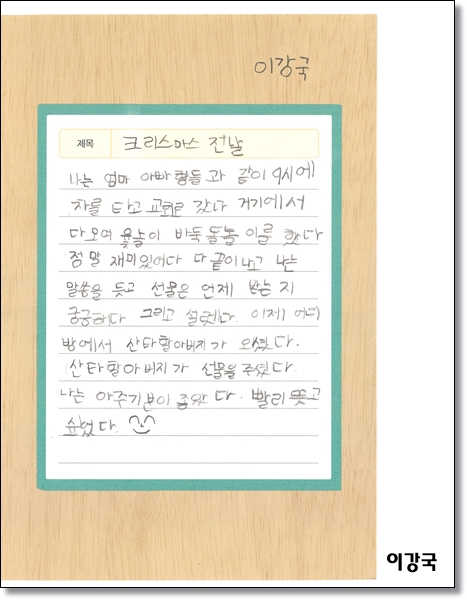 이강국
제목 크리스마스 전날
나는 엄마 아빠 형들 과 같이 9시에
차를 타고 교회로 갔다 거기에서
다모여 윷놀이 바둑돌놀 이를 했다
정말 재미있어다 다 끝이나고 나는
말씀을 듯고 선물은 언제 받는 지
궁궁하다 그리고 설렛다 이제 어디
방에서 산타할아버지가 오셨다.
산타할아버지가 선물을 주셨다.
나는 아주기분이 좋았다. 빨리 뜻고
싶었다.
이강국